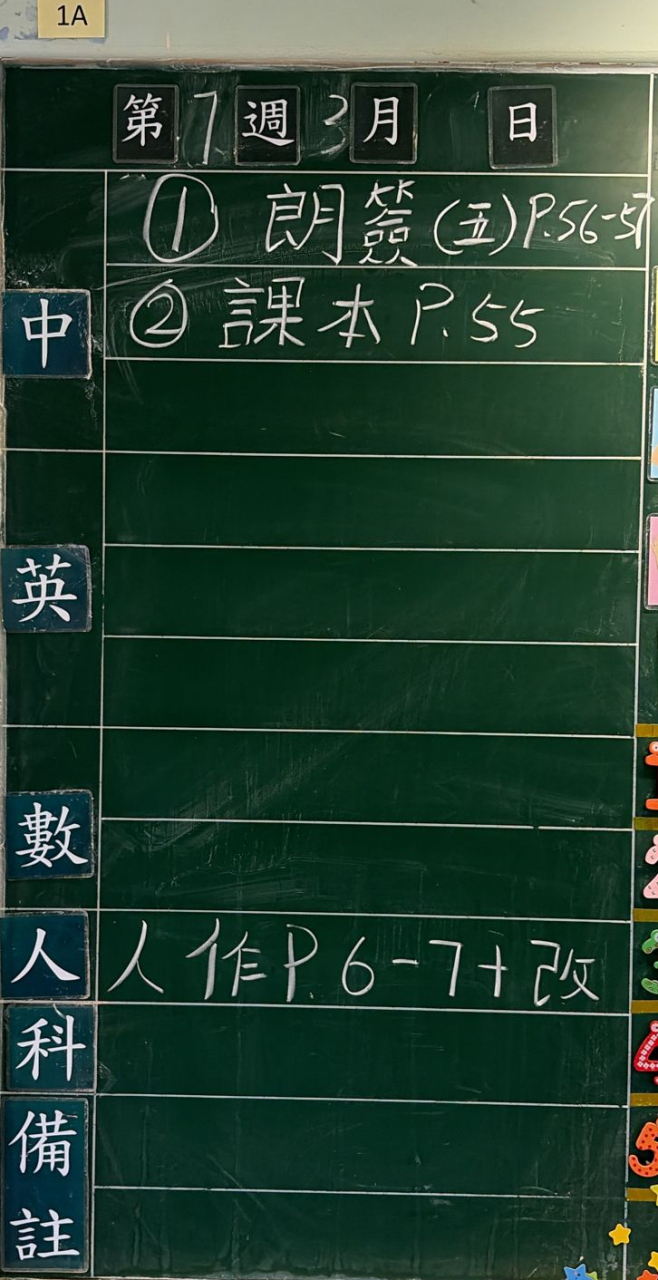 1A
第7週3月 日
① 朗簽(五)P.56-57
中 ② 課本 P.55
英
數
人 人作P.6-7+改
科
備註